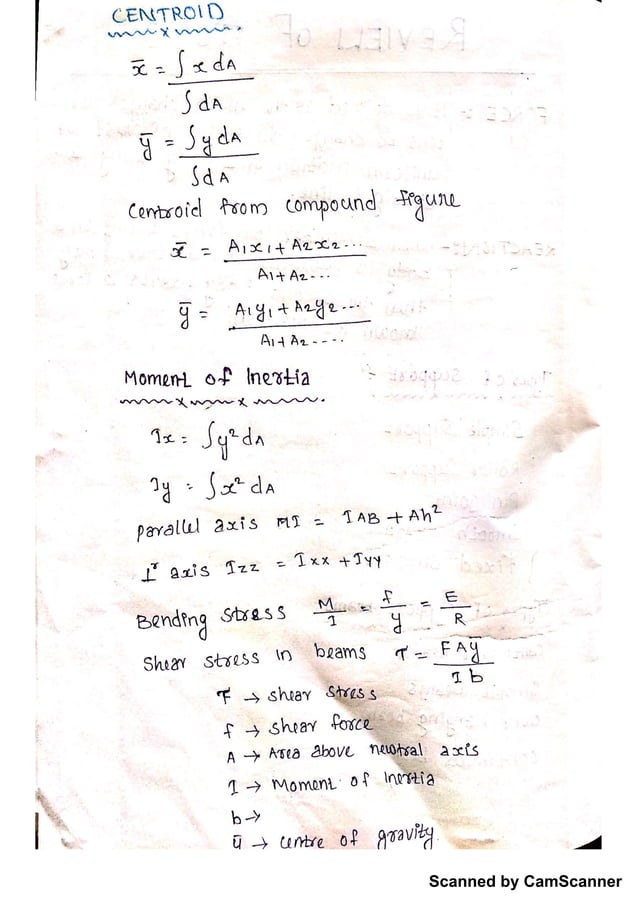 CENTROID
x̄ = ∫x dA / ∫dA
ȳ = ∫y dA / ∫dA
Centroid from compound figure
x̄ = A1x1 + A2x2... / A1 + A2...
ȳ = A1y1 + A2y2... / A1 + A2....
Moment of Inertia
Ix = ∫y² dA
Iy = ∫x² dA
parallel axis MI = IAB + Ah²
⊥r axis Izz = Ixx + Iyy
Bending stress M/I = f/y = E/R
Shear stress in beams τ = FAȳ / Ib
τ → shear stress
f → shear force
A → Area above newtral axis
I → Moment of Inertia
b →
ȳ → centre of gravity.
Scanned by CamScanner